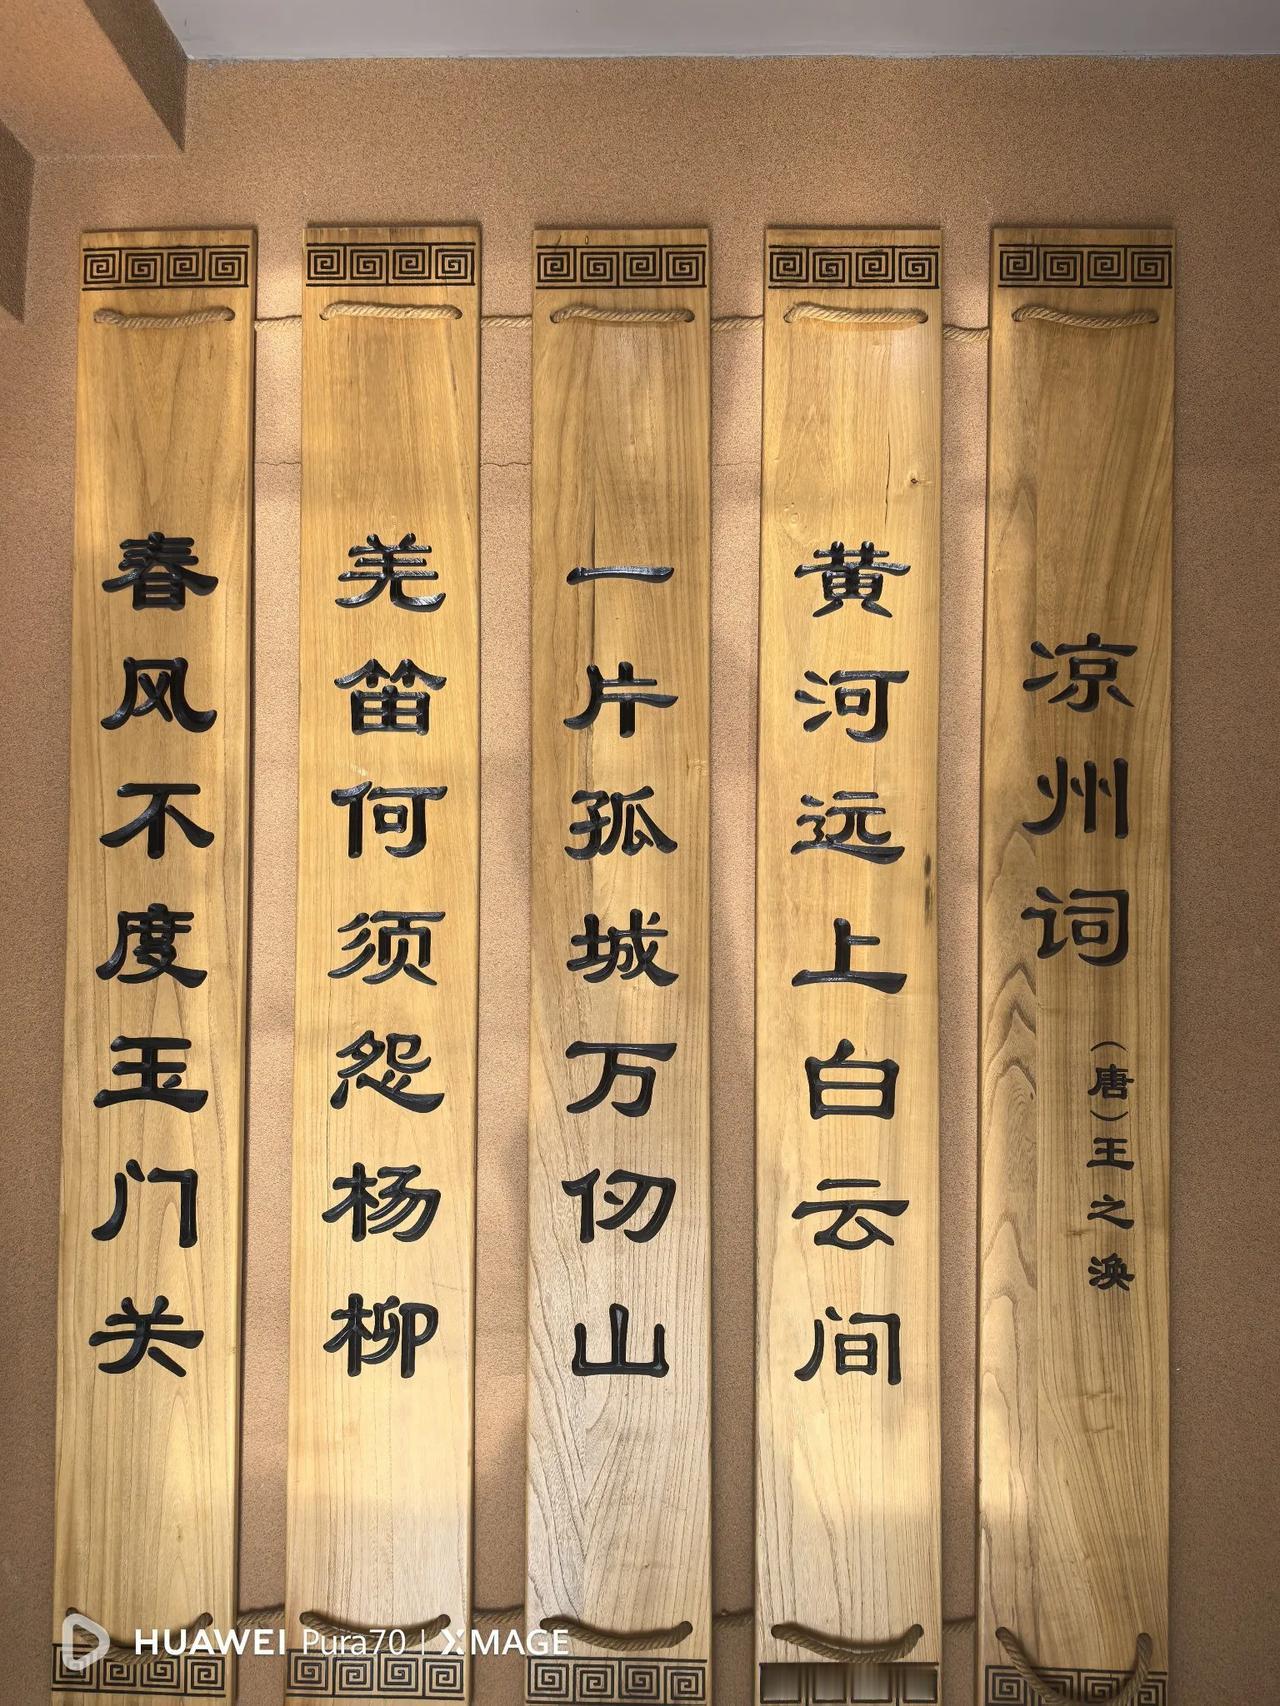 凉州词
（唐）王之涣
黄河远上白云间
一片孤城万仞山
羌笛何须怨杨柳
春风不度玉门关
HUAWEI Pura70 | XMAGE